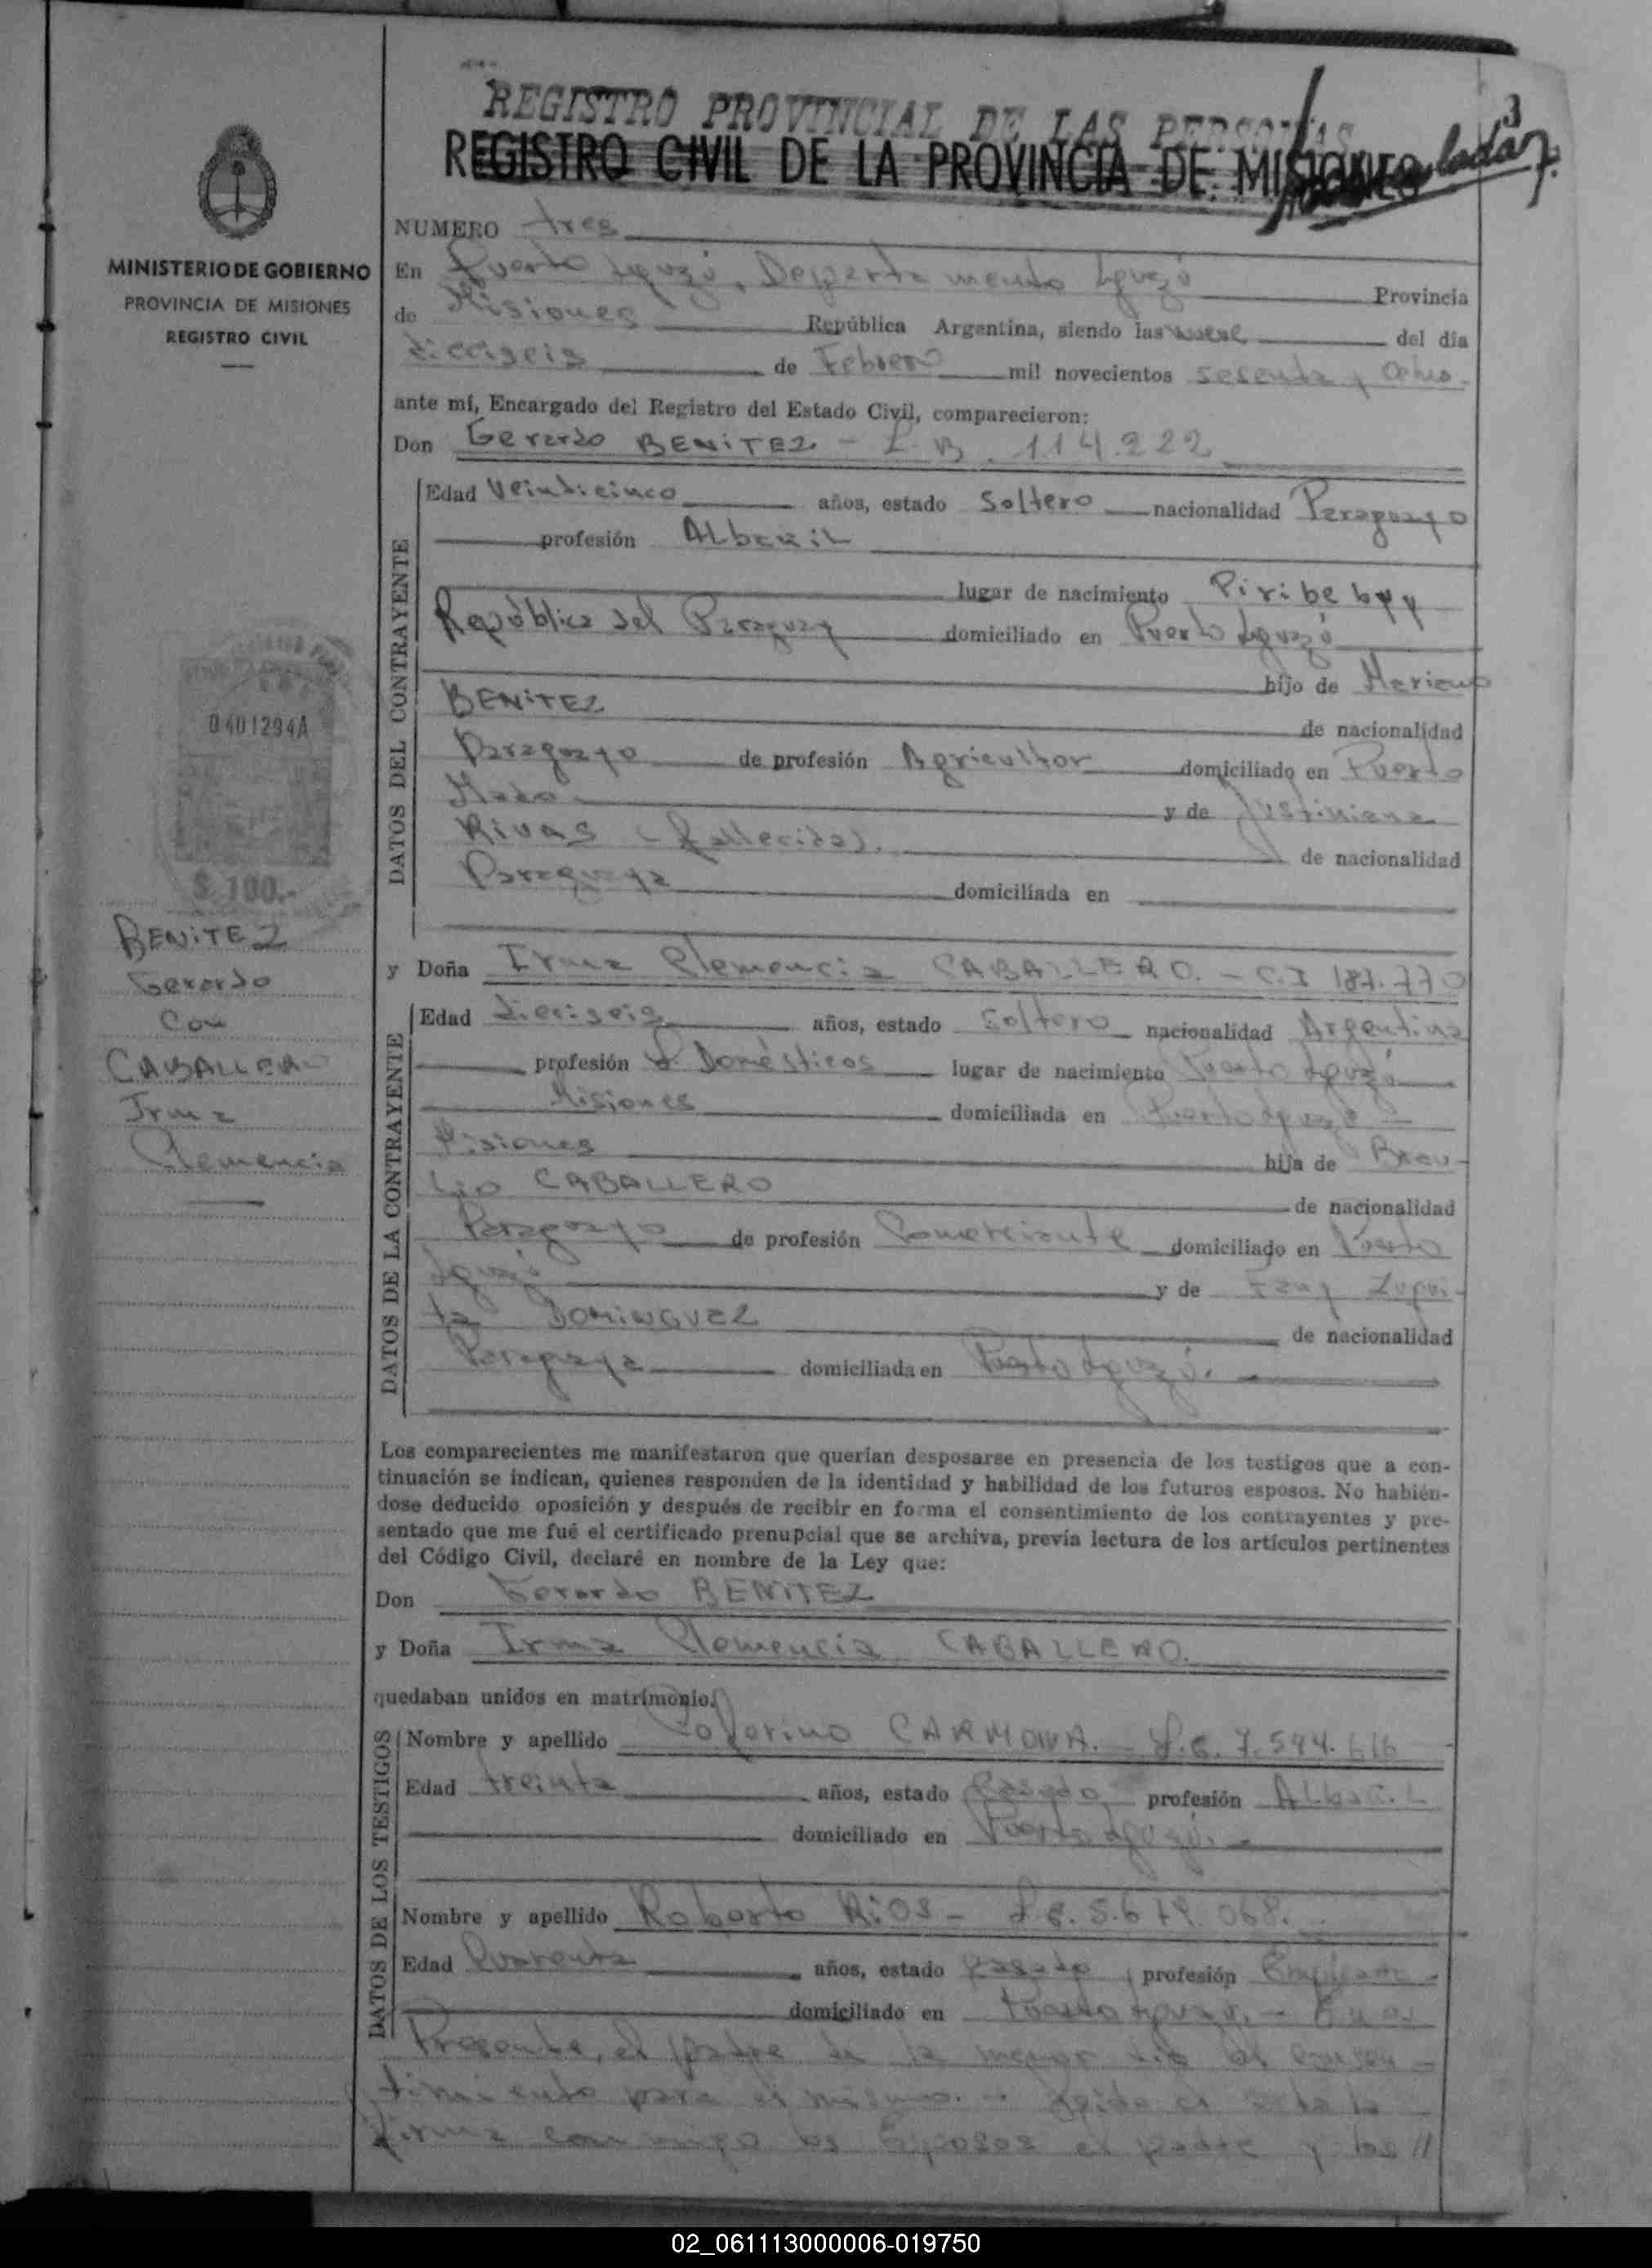 3
REGISTRO PROVINCIAL DE LAS PERSONAS
REGISTRO CIVIL DE LA PROVINCIA DE MISIONES
MINISTERIO DE GOBIERNO
PROVINCIA DE MISIONES
REGISTRO CIVIL
NUMERO tres
En Puerto Iguazú, Departamento Iguazú Provincia
de Misiones República Argentina, siendo las del día
dieciseis de Febrero mil novecientos sesenta y ocho-
ante mí, Encargado del Registro del Estado Civil, comparecieron:
Don Gerardo BENiTEZ - 114.222
DATOS DEL CONTRAYENTE
Edad Veinticinco años, estado Soltero nacionalidad Paraguayo
profesión Albañil
lugar de nacimiento Piribebuy
República del Paraguay domiciliado en Puerto Iguazú
hijo de Mariano
BENiTEZ de nacionalidad
Paraguayo de profesión Agricultor domiciliado en Puerto
y de Justiniana
RIVAS (fallecida). de nacionalidad
Paraguaya domiciliada en
0401294A
$ 100.-
BENiTEZ
Gerardo
Con
CABALLERO
Irma
Clemencia
y Doña Irma Clemencia CABALLERO. - C.I 187.770
DATOS DE LA CONTRAYENTE
Edad dieciseis años, estado Soltero nacionalidad Argentina
profesión Domésticos lugar de nacimiento Puerto Iguazú
Misiones domiciliada en Puerto Iguazú -
Misiones hija de Brau-
lio CABALLERO de nacionalidad
Paraguayo de profesión Comerciante domiciliado en Puerto
Iguazú y de
DOMINGUEZ de nacionalidad
Paraguaya domiciliada en Puerto Iguazú.
Los comparecientes me manifestaron que querían desposarse en presencia de los testigos que a con-
tinuación se indican, quienes responden de la identidad y habilidad de los futuros esposos. No habién-
dose deducido oposición y después de recibir en forma el consentimiento de los contrayentes y pre-
sentado que me fué el certificado prenupcial que se archiva, previa lectura de los artículos pertinentes
del Código Civil, declaré en nombre de la Ley que:
Don Gerardo BENITEZ
y Doña Irma Clemencia CABALLERO.
quedaban unidos en matrimonio.
DATOS DE LOS TESTIGOS
Nombre y apellido Ceferino CARMONA. - 7.544.616
Edad treinta años, estado Casado profesión Albañil
domiciliado en Puerto Iguazú. -
Nombre y apellido Roberto RiOS -
Edad Cuarenta años, estado Casado profesión Empleado
domiciliado en Puerto Iguazú -
Presente, el padre de la menor dio el consen-
timiento para el mismo. - Leida el acta la
firma conmigo los Esposos el padre y los //
02_061113000006-019750